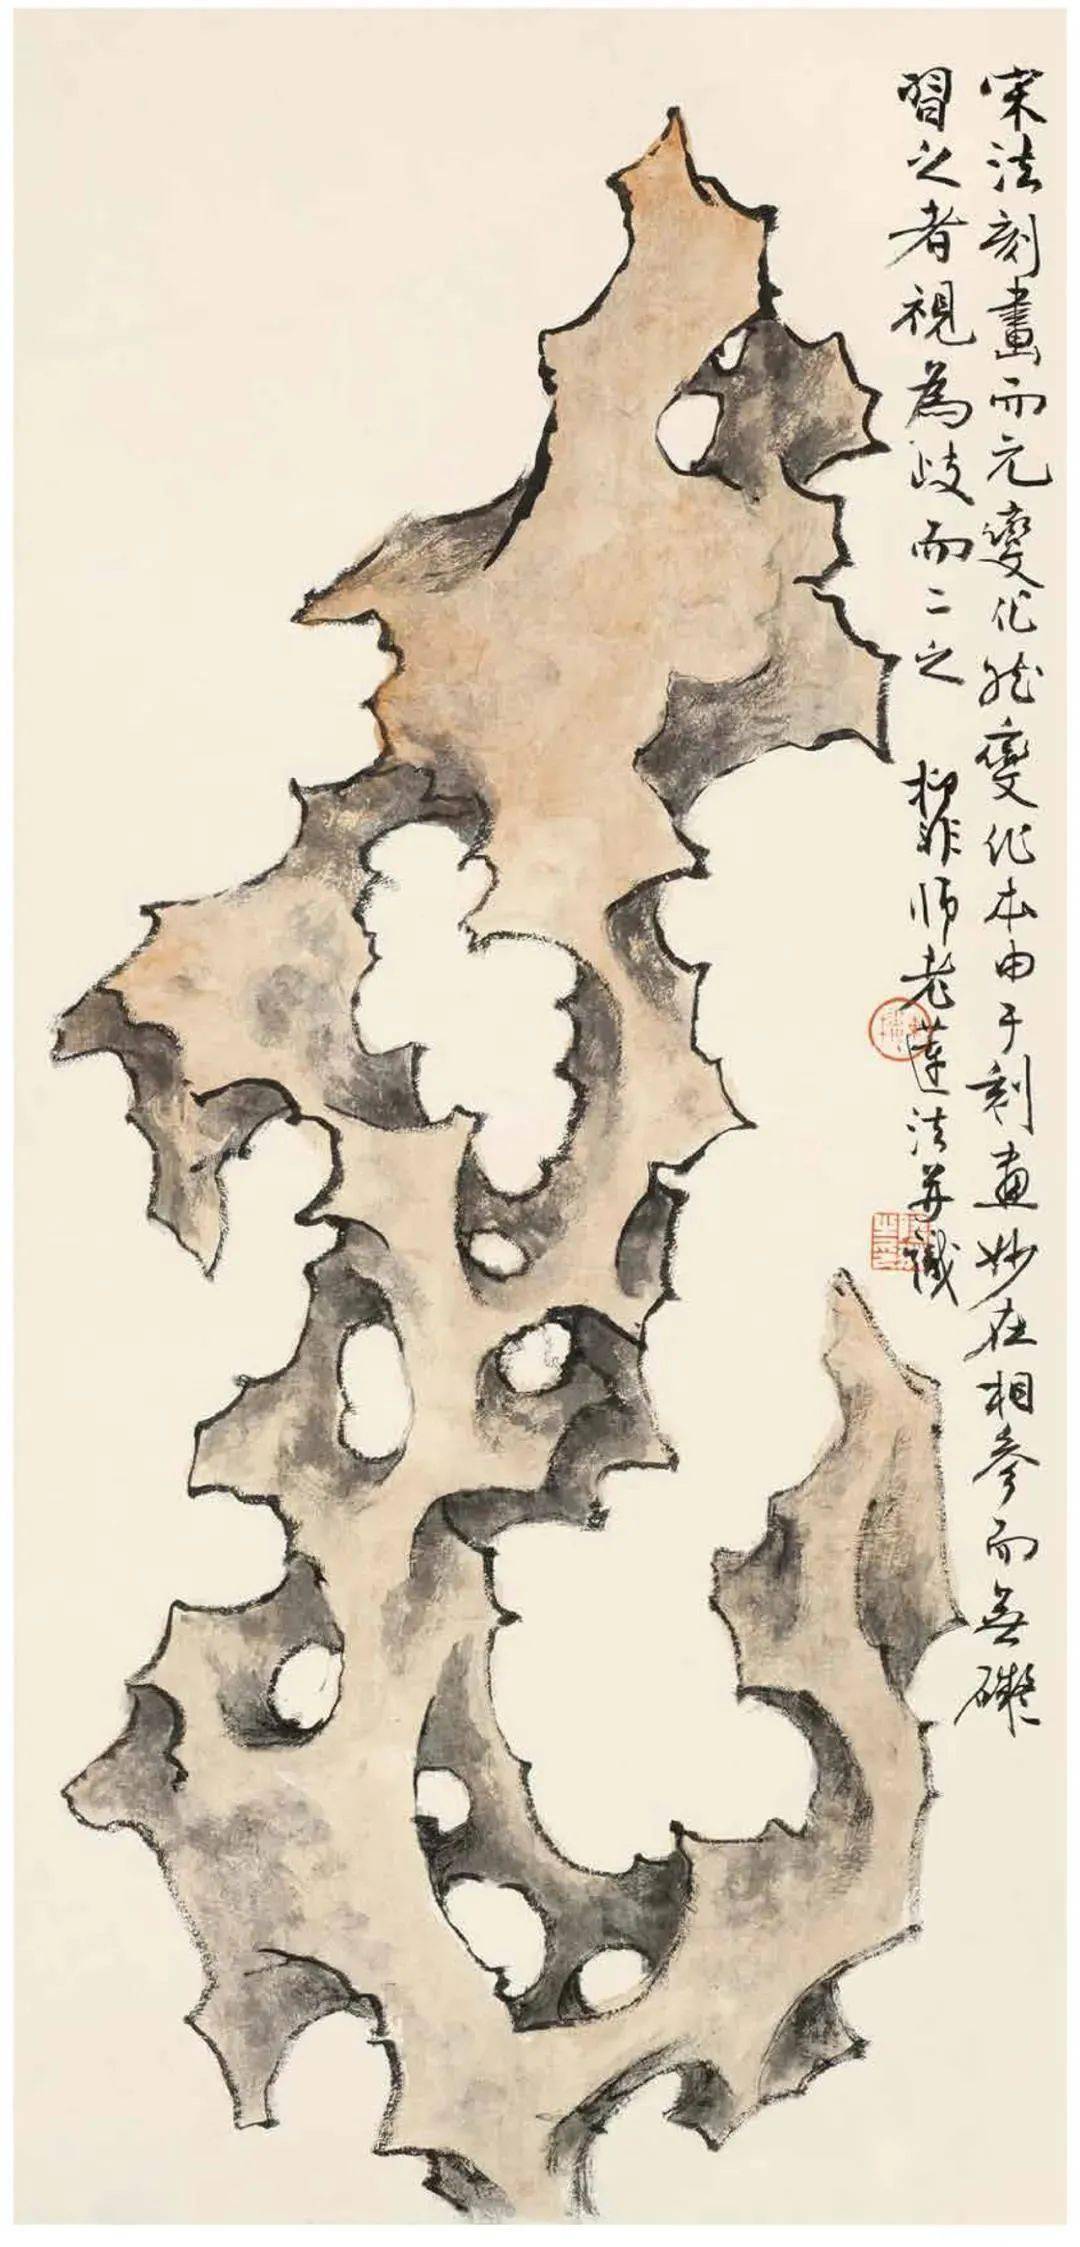 宋法刻畫而元變化然變化本由于刻畫妙在相參而無礙
習之者視為歧而二之 抑非師老蓮法并識